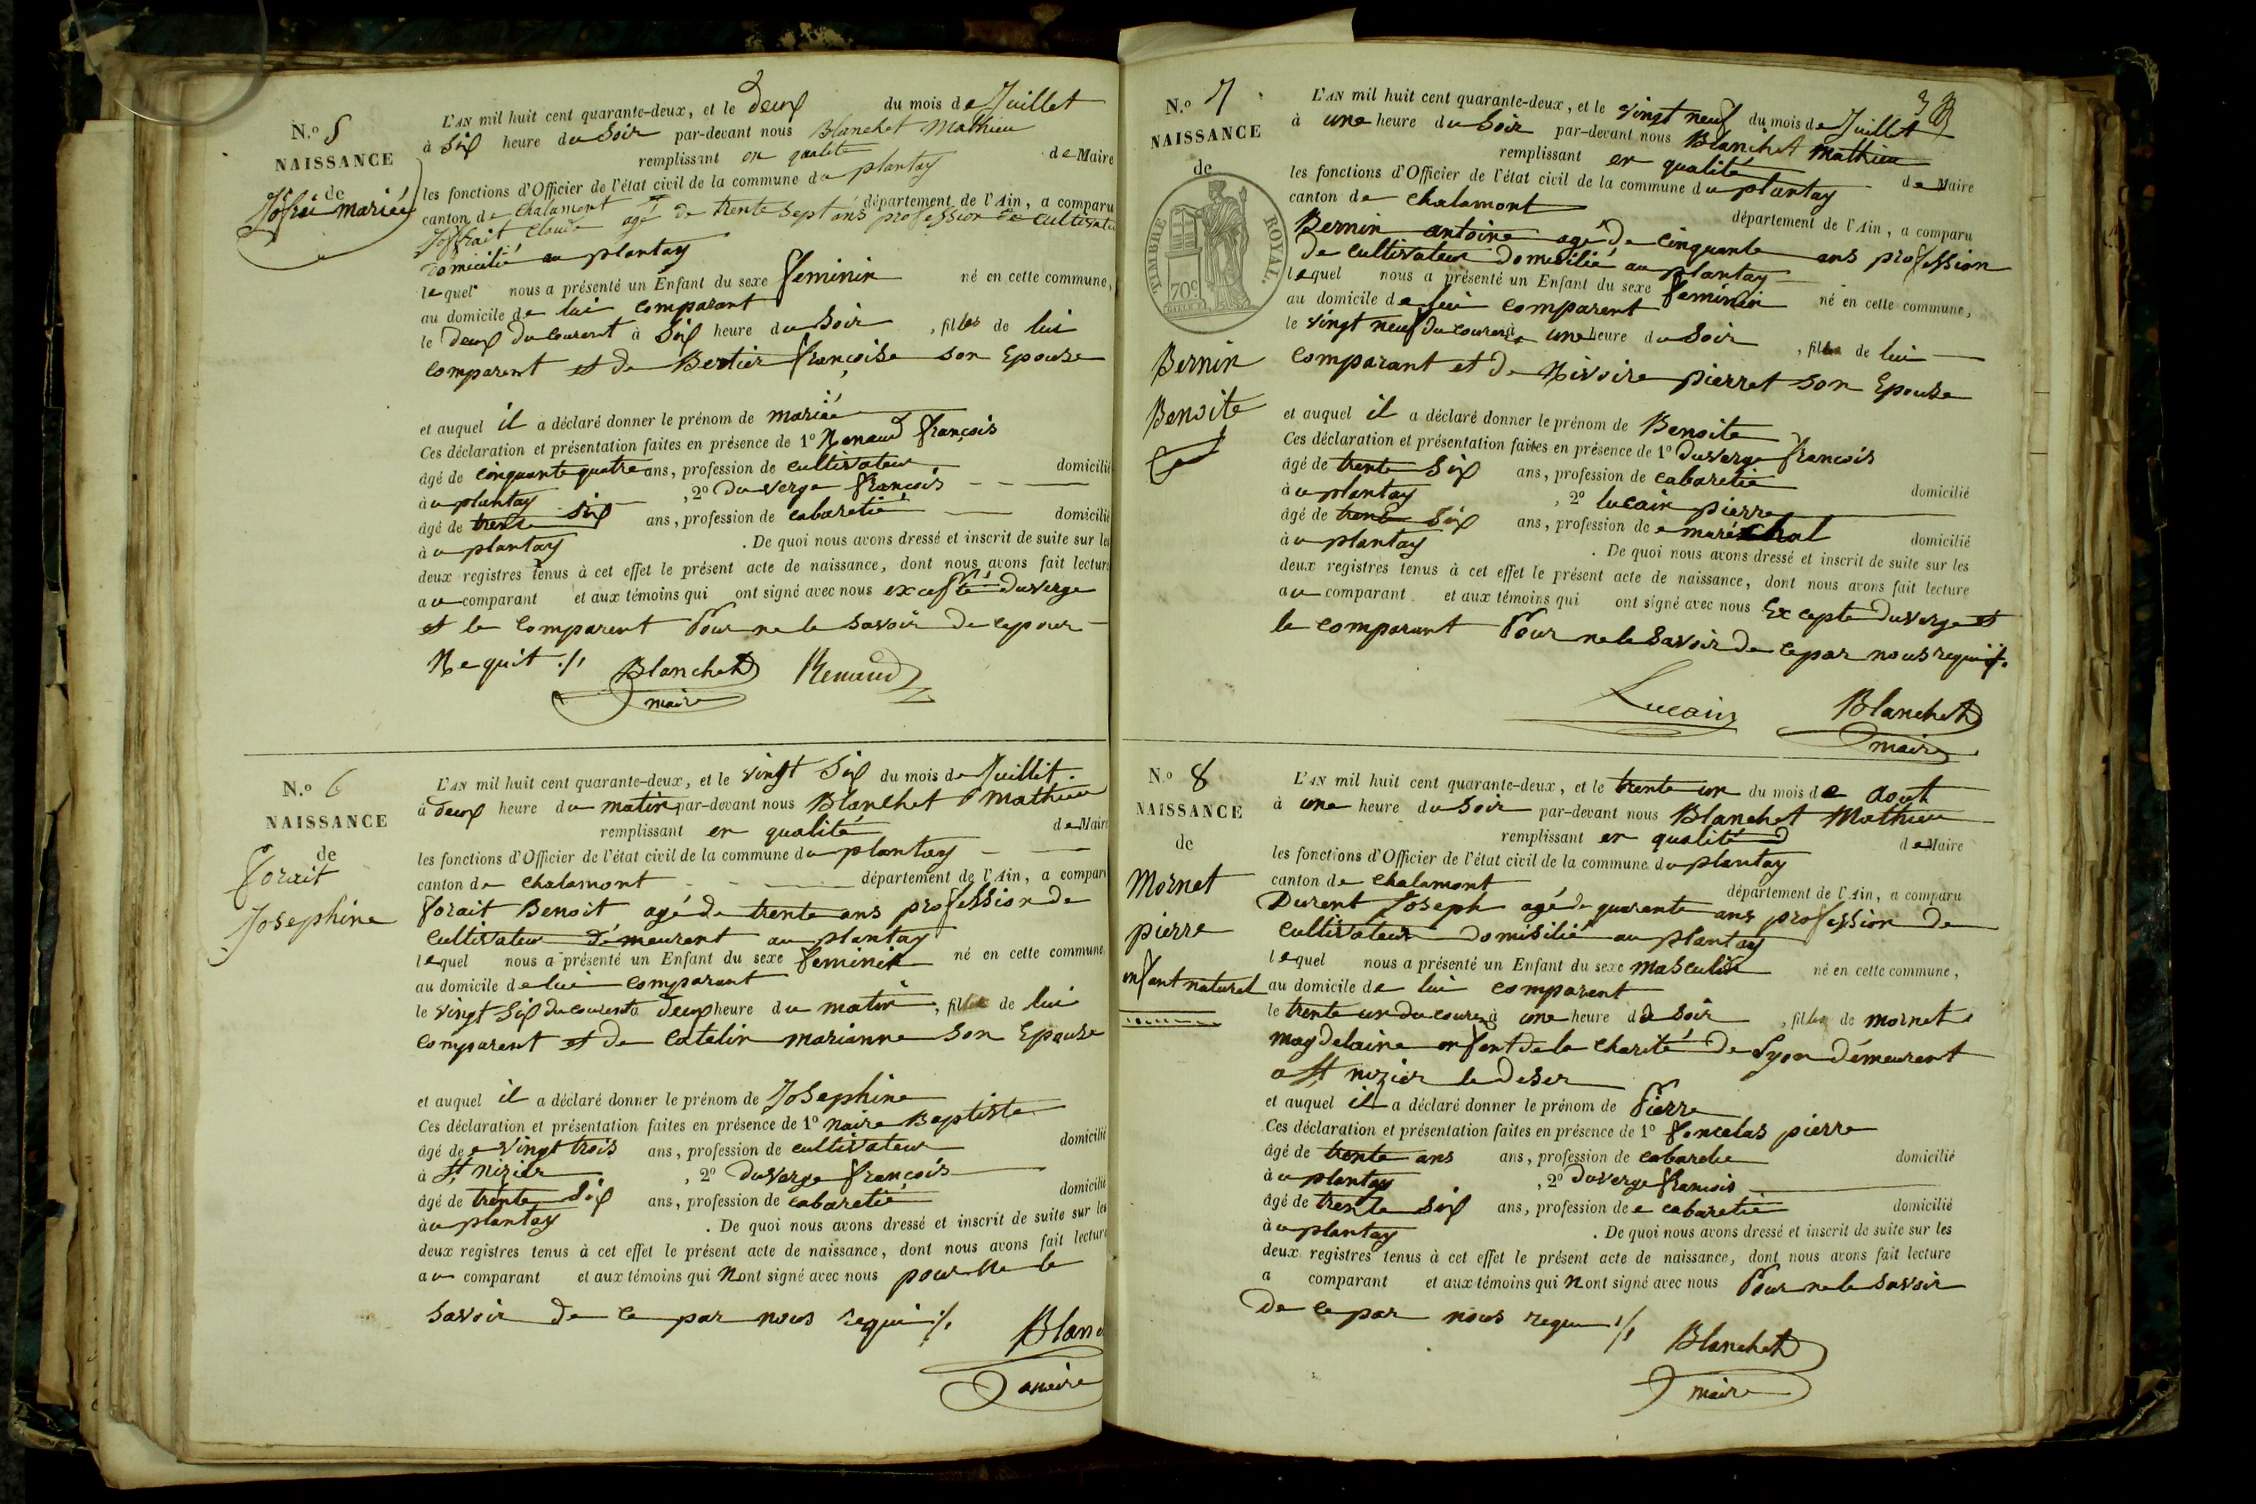 N.o 5
NAISSANCE
de
Jofrai mariée
L'AN mil huit cent quarante-deux, et le deux du mois de Juillet
à Six heure du Soir par-devant nous Blanchet Mathieu
remplissant en qualité de Maire
les fonctions d'Officier de l'état civil de la commune du plantay
canton de chalamont département de l'Ain, a comparu
Joffrait Claude agé de trente sept ans profession de cultivateur
domicilié au plantay
lequel nous a présenté un Enfant du sexe feminin né en cette commune,
au domicile de lui comparant
le deux du courent à Six heure du Soir, filles de lui
comparent et de Bertier françoise son Epouse
et auquel il a déclaré donner le prénom de mariée
Ces déclaration et présentation faites en présence de 1o Renaud françois
âgé de cinquante quatre ans, profession de cultivateur domicilié
à u plantay, 2o duverge francois
âgé de trente Six ans, profession de cabaretié domicilié
à u plantay. De quoi nous avons dressé et inscrit de suite sur les
deux registres tenus à cet effet le présent acte de naissance, dont nous avons fait lecture
a u comparant et aux témoins qui ont signé avec nous excepté duverge
et le comparent Pour ne le savoir de ce pour
Requit ./. Blanchet Renaud
maire
N.o 6
NAISSANCE
de
forait
Josephine
L'AN mil huit cent quarante-deux, et le vingt Six du mois de Juillit.
à deux heure du matin par-devant nous Blanchet Mathieu
remplissant en qualité de Maire
les fonctions d'Officier de l'état civil de la commune du plantay
canton de chalamont département de l'Ain, a comparu
forait Benoit agé de trente ans profession de
cultivateur démeurent au plantay
lequel nous a présenté un Enfant du sexe feminin né en cette commune,
au domicile de lui comparant
le vingt Six du courent à deux heure du matin, filles de lui
comparent et de Catelin marianne son Epouse
et auquel il a déclaré donner le prénom de Josephine
Ces déclaration et présentation faites en présence de 1o naire Baptiste
âgé de vingt trois ans, profession de cultivateur domicilié
à St nizier, 2o duverge francois
âgé de trente Six ans, profession de cabaretié domicilié
à u plantay. De quoi nous avons dressé et inscrit de suite sur les
deux registres tenus à cet effet le présent acte de naissance, dont nous avons fait lecture
a u comparant et aux témoins qui nont signé avec nous pour ne le
savoir de ce par nous requi ./.
Blanc
maire
N.o 7
NAISSANCE
de
TIMBRE ROYAL.
70c
Bernin
Benoite
L'AN mil huit cent quarante-deux, et le vingt neuf du mois de Juillet
à une heure du Soir par-devant nous Blanchet Mathieu
remplissant en qualité de Maire
les fonctions d'Officier de l'état civil de la commune du plantay
canton de chalamont département de l'Ain, a comparu
Bernin antoine agé de cinquante ans profession
de cultivateur domicilié au plantay
lequel nous a présenté un Enfant du sexe feminin né en cette commune,
au domicile de lui comparent
le vingt neuf du courent à une heure du Soir, filles de lui
comparant et de Nivoire pierret son Epouse
et auquel il a déclaré donner le prénom de Benoite
Ces déclaration et présentation faites en présence de 1o duverge francois
âgé de trente Six ans, profession de cabaretié domicilié
à u plantay, 2o lucain pierre
âgé de trente Six ans, profession de maréchal domicilié
à u plantay. De quoi nous avons dressé et inscrit de suite sur les
deux registres tenus à cet effet le présent acte de naissance, dont nous avons fait lecture
a u comparant et aux témoins qui ont signé avec nous Excepte duverge et
le comparant Pour ne le savoir de ce par nous requi ./.
Lucain Blanchet
maire
N.o 8
NAISSANCE
de
Mornet
pierre
enfant naturel
L'AN mil huit cent quarante-deux, et le trente un du mois de aout
à une heure du Soir par-devant nous Blanchet Mathieu
remplissant en qualité de Maire
les fonctions d'Officier de l'état civil de la commune du plantay
canton de chalamont département de l'Ain, a comparu
Durent Joseph agé de quarente ans profession de
cultivateur domisilié au plantay
lequel nous a présenté un Enfant du sexe masculin né en cette commune,
au domicile de lui comparent
le trente un du couren à une heure du soir, fils de mornet
magdelaine enfent de la charité de Lyon démeurent
a St nizier le deser
et auquel il a déclaré donner le prénom de Pierre
Ces déclaration et présentation faites en présence de 1o foncelas pierre
âgé de trente ans ans, profession de cabaretie domicilié
à u plantay, 2o duverge francois
âgé de trente Six ans, profession de cabaretié domicilié
à u plantay. De quoi nous avons dressé et inscrit de suite sur les
deux registres tenus à cet effet le présent acte de naissance, dont nous avons fait lecture
a comparant et aux témoins qui nont signé avec nous Pour ne le savoir
de ce par nous requi ./. Blanchet
maire